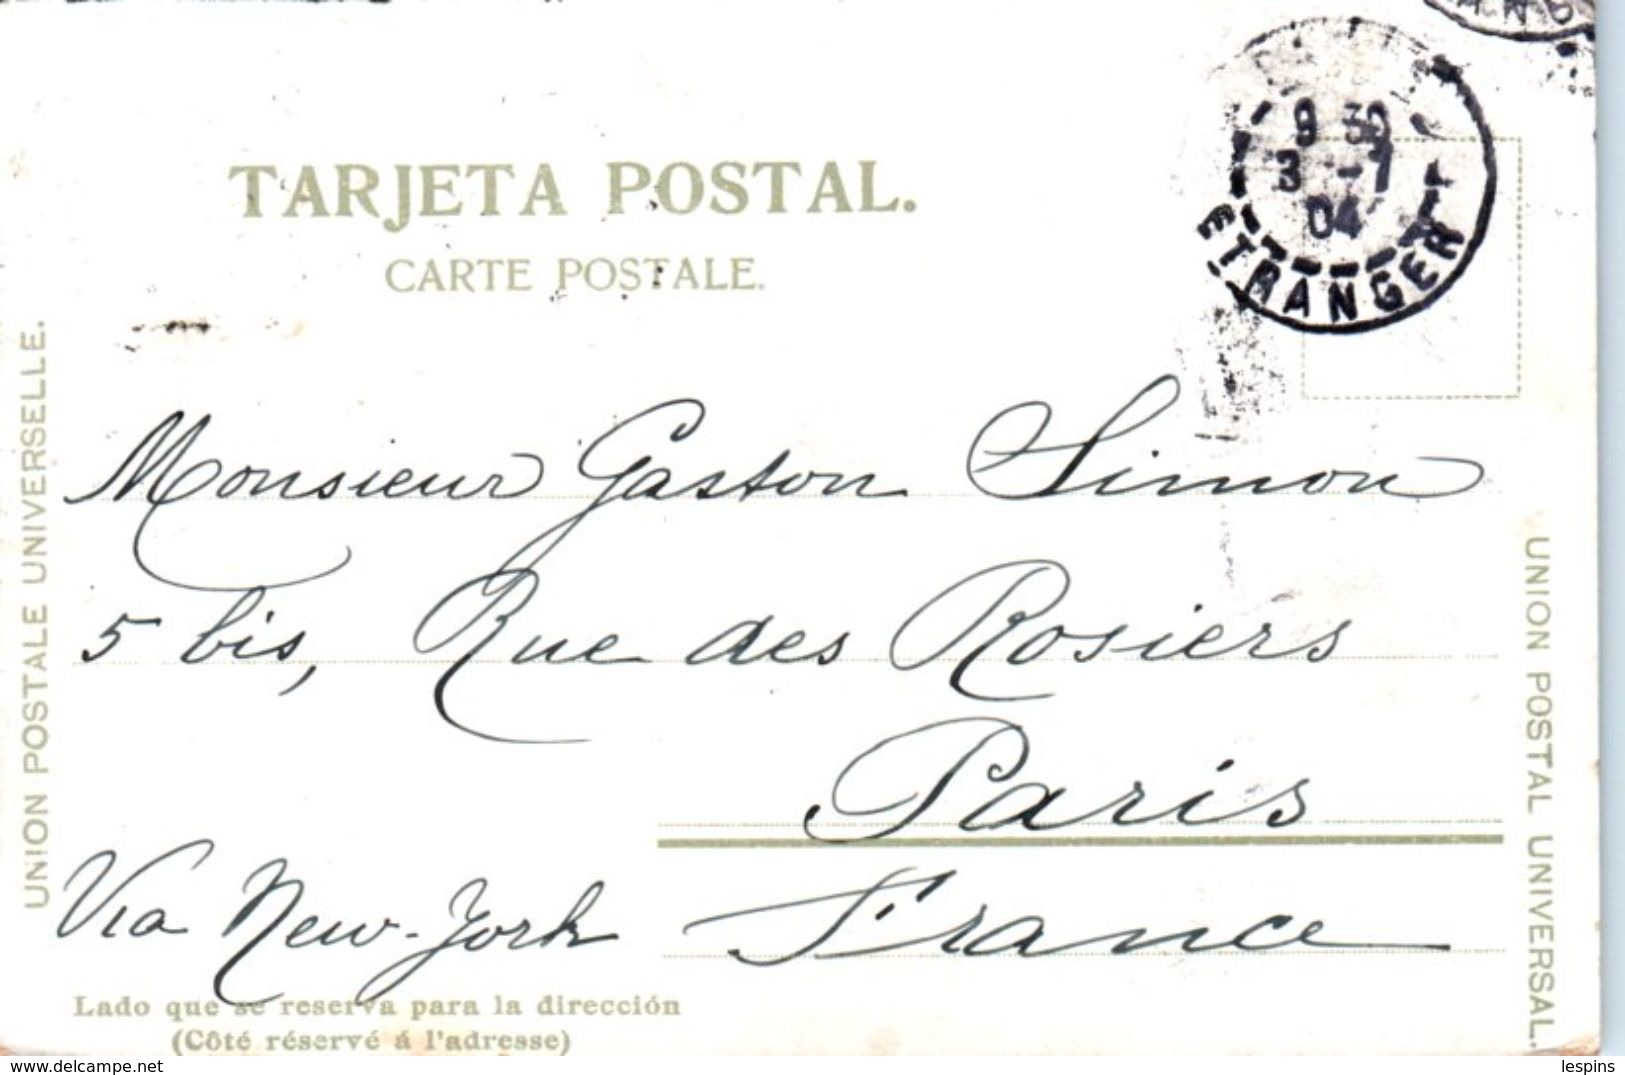 9 30
3 -7
04
ETRANGER
TARJETA POSTAL.
CARTE POSTALE.
UNION POSTALE UNIVERSELLE.
Monsieur Gaston Simon
5 bis, Rue des Rosiers
Paris
Via New-York
France
UNION POSTAL UNIVERSAL.
Lado que se reserva para la dirección
(Côté réservé á l'adresse)
www.delcampe.net
lespins